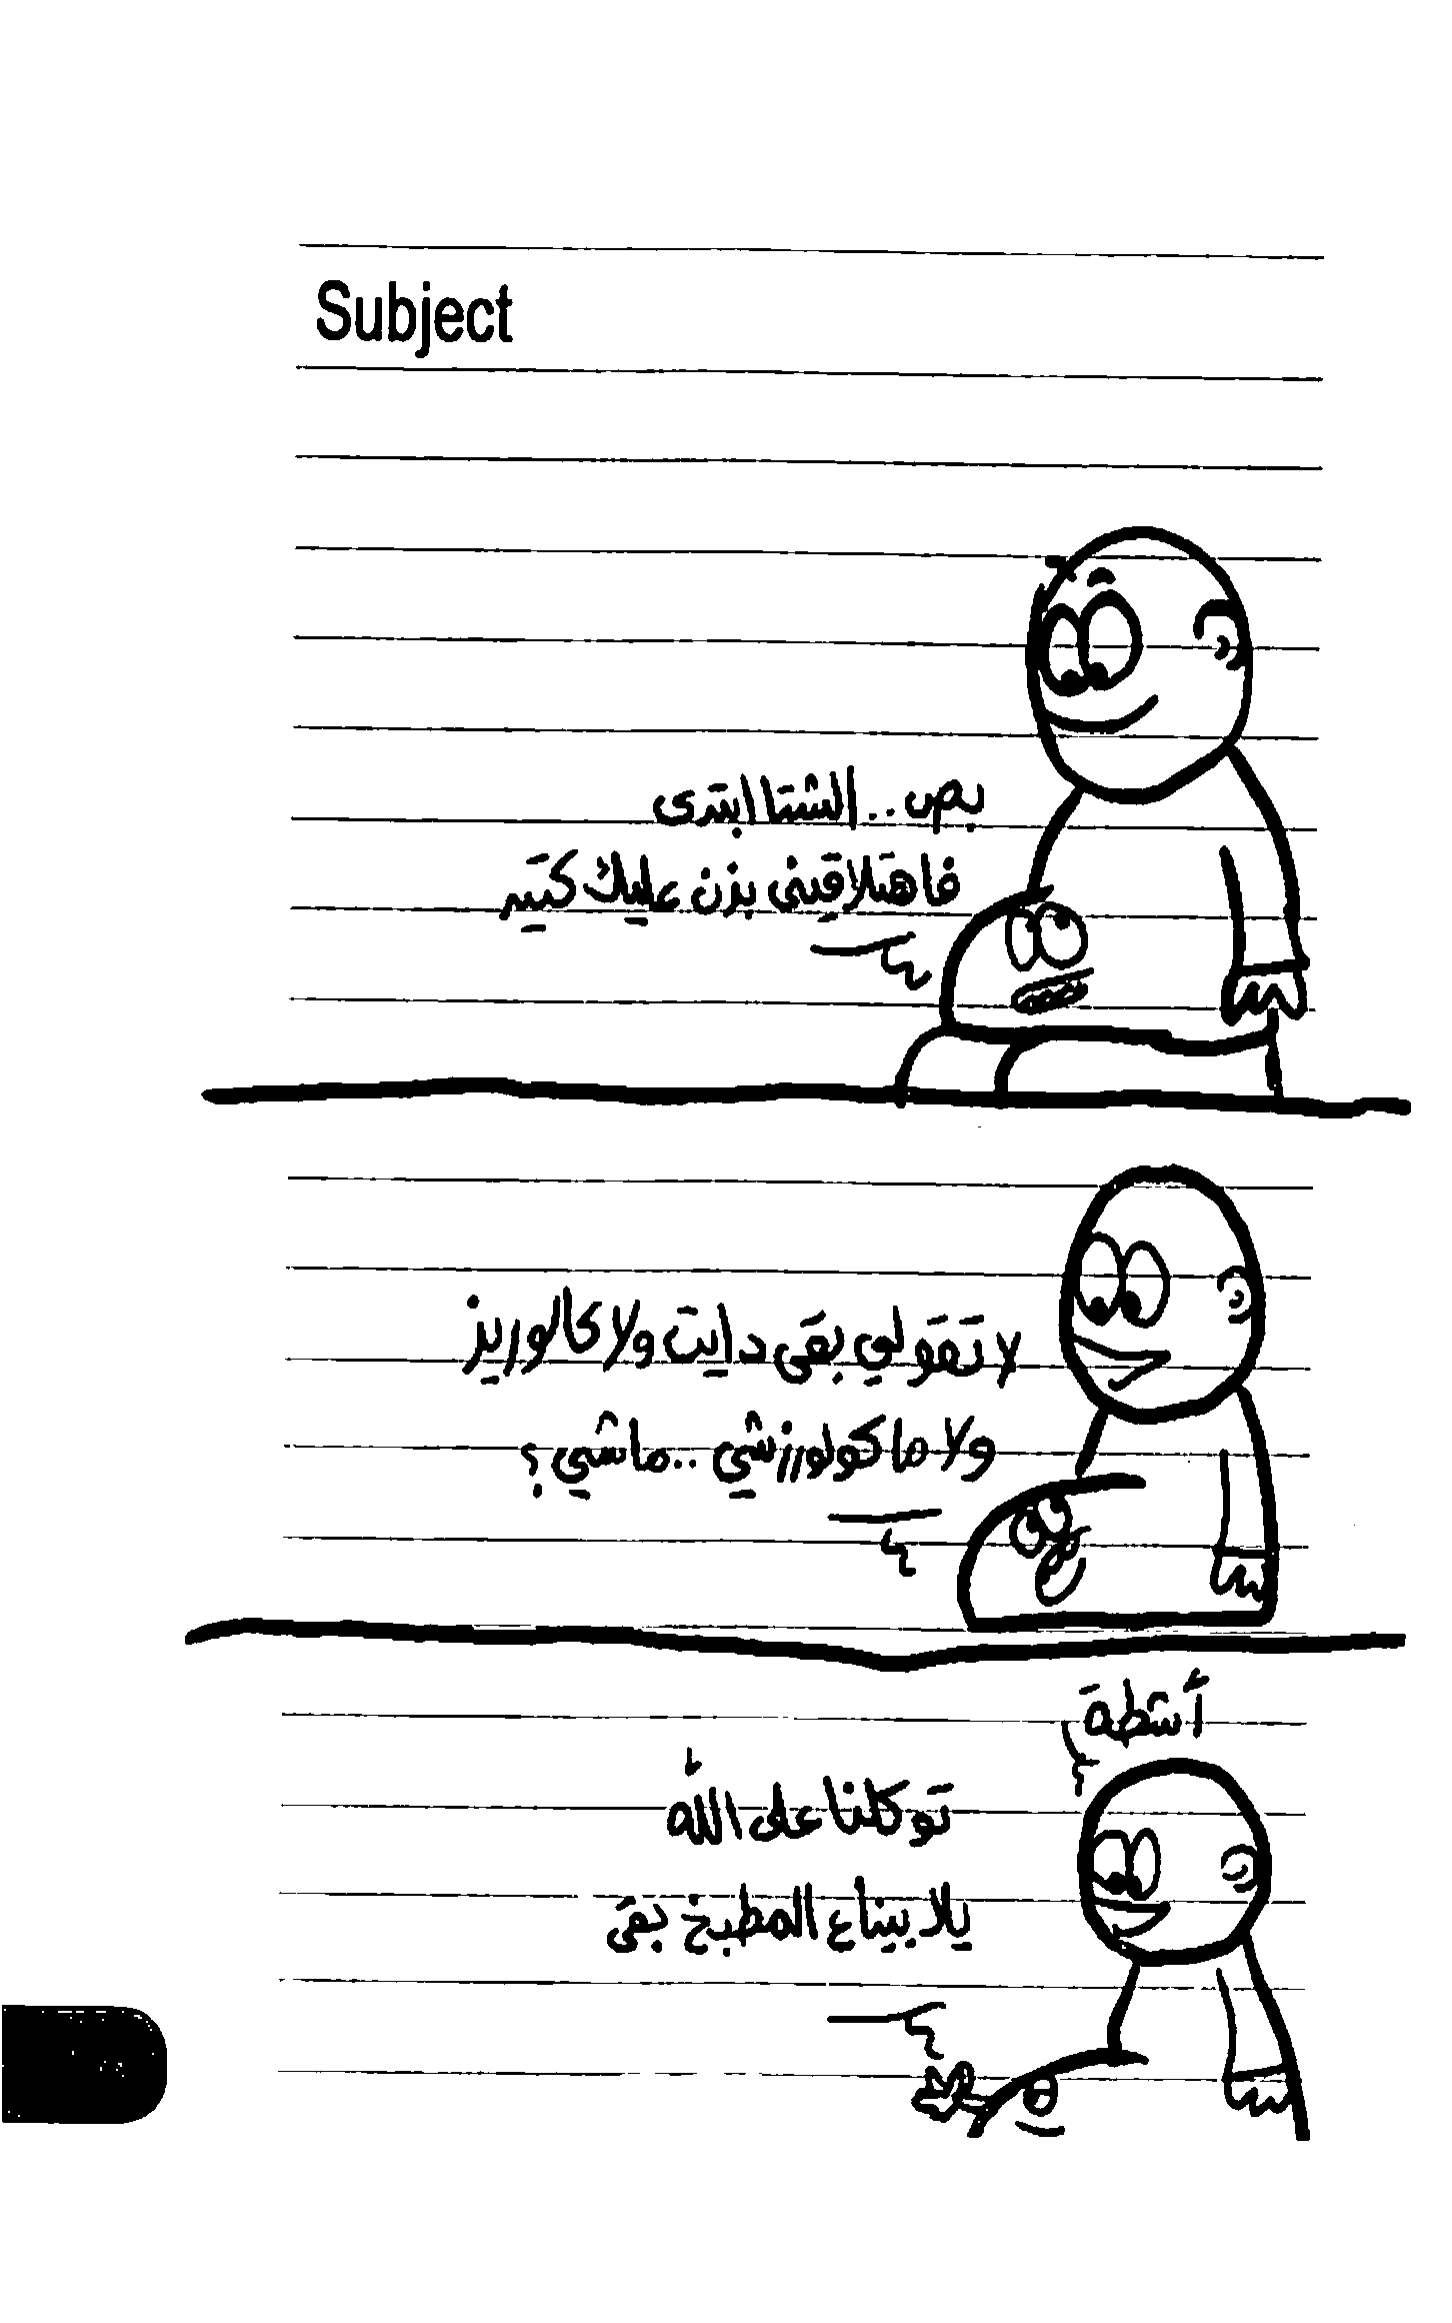 Subject
بص.. الشتا ابتدى
فا هتلاقينى بزن عليك كتير
لا تقولي بقى دايت ولا كالوريز
ولا ماكولورزشي.. ماشي؟
أشطة
توكلنا على الله
يلا بيناع المطبخ بقى